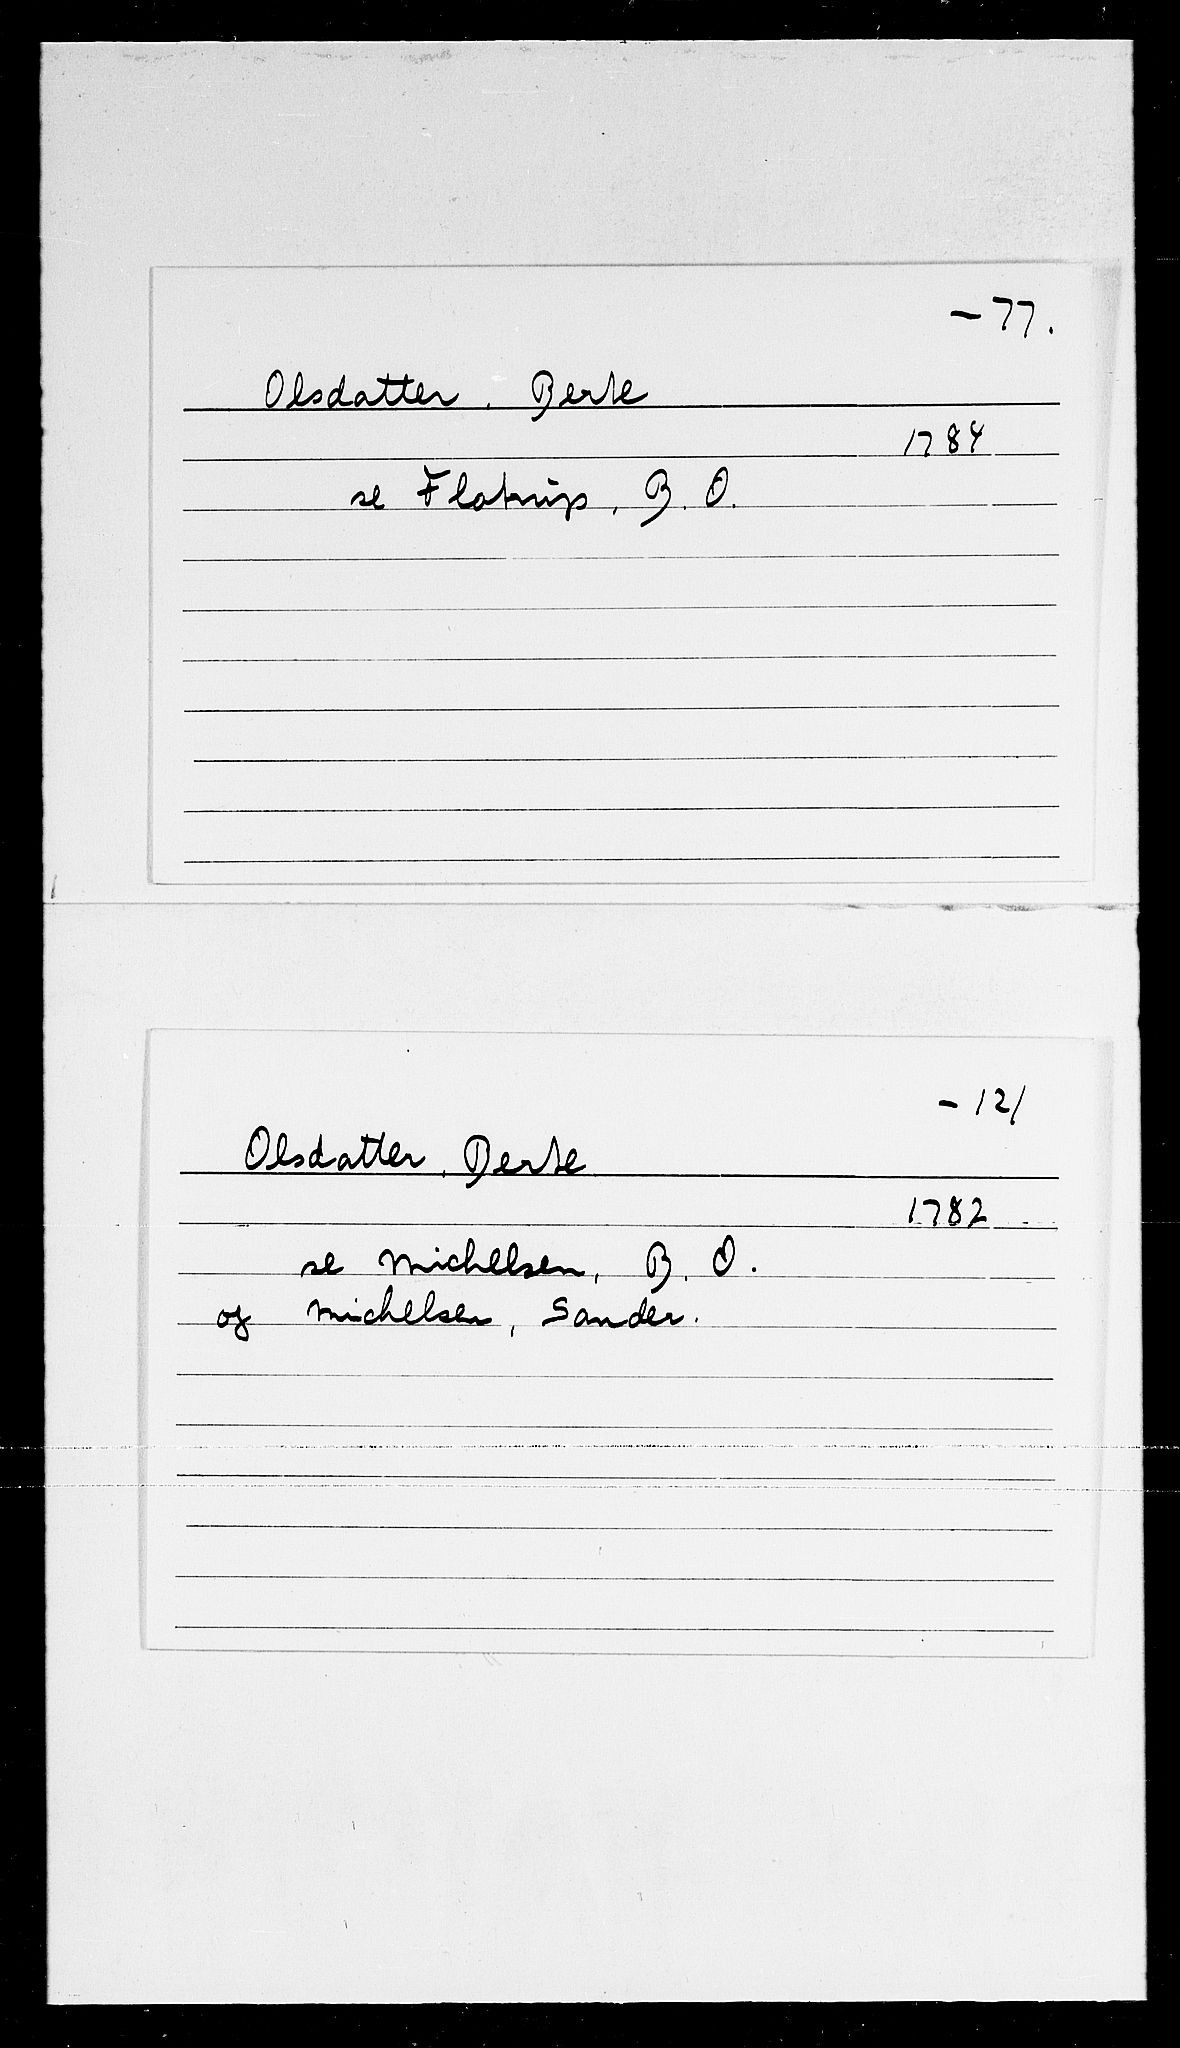 - 77.
Olsdatter, Berte
1784
se Flatrup, B. O.
- 121
Olsdatter, Berte
1782
se Michelsen, B. O.
og Michelsen, Sander.